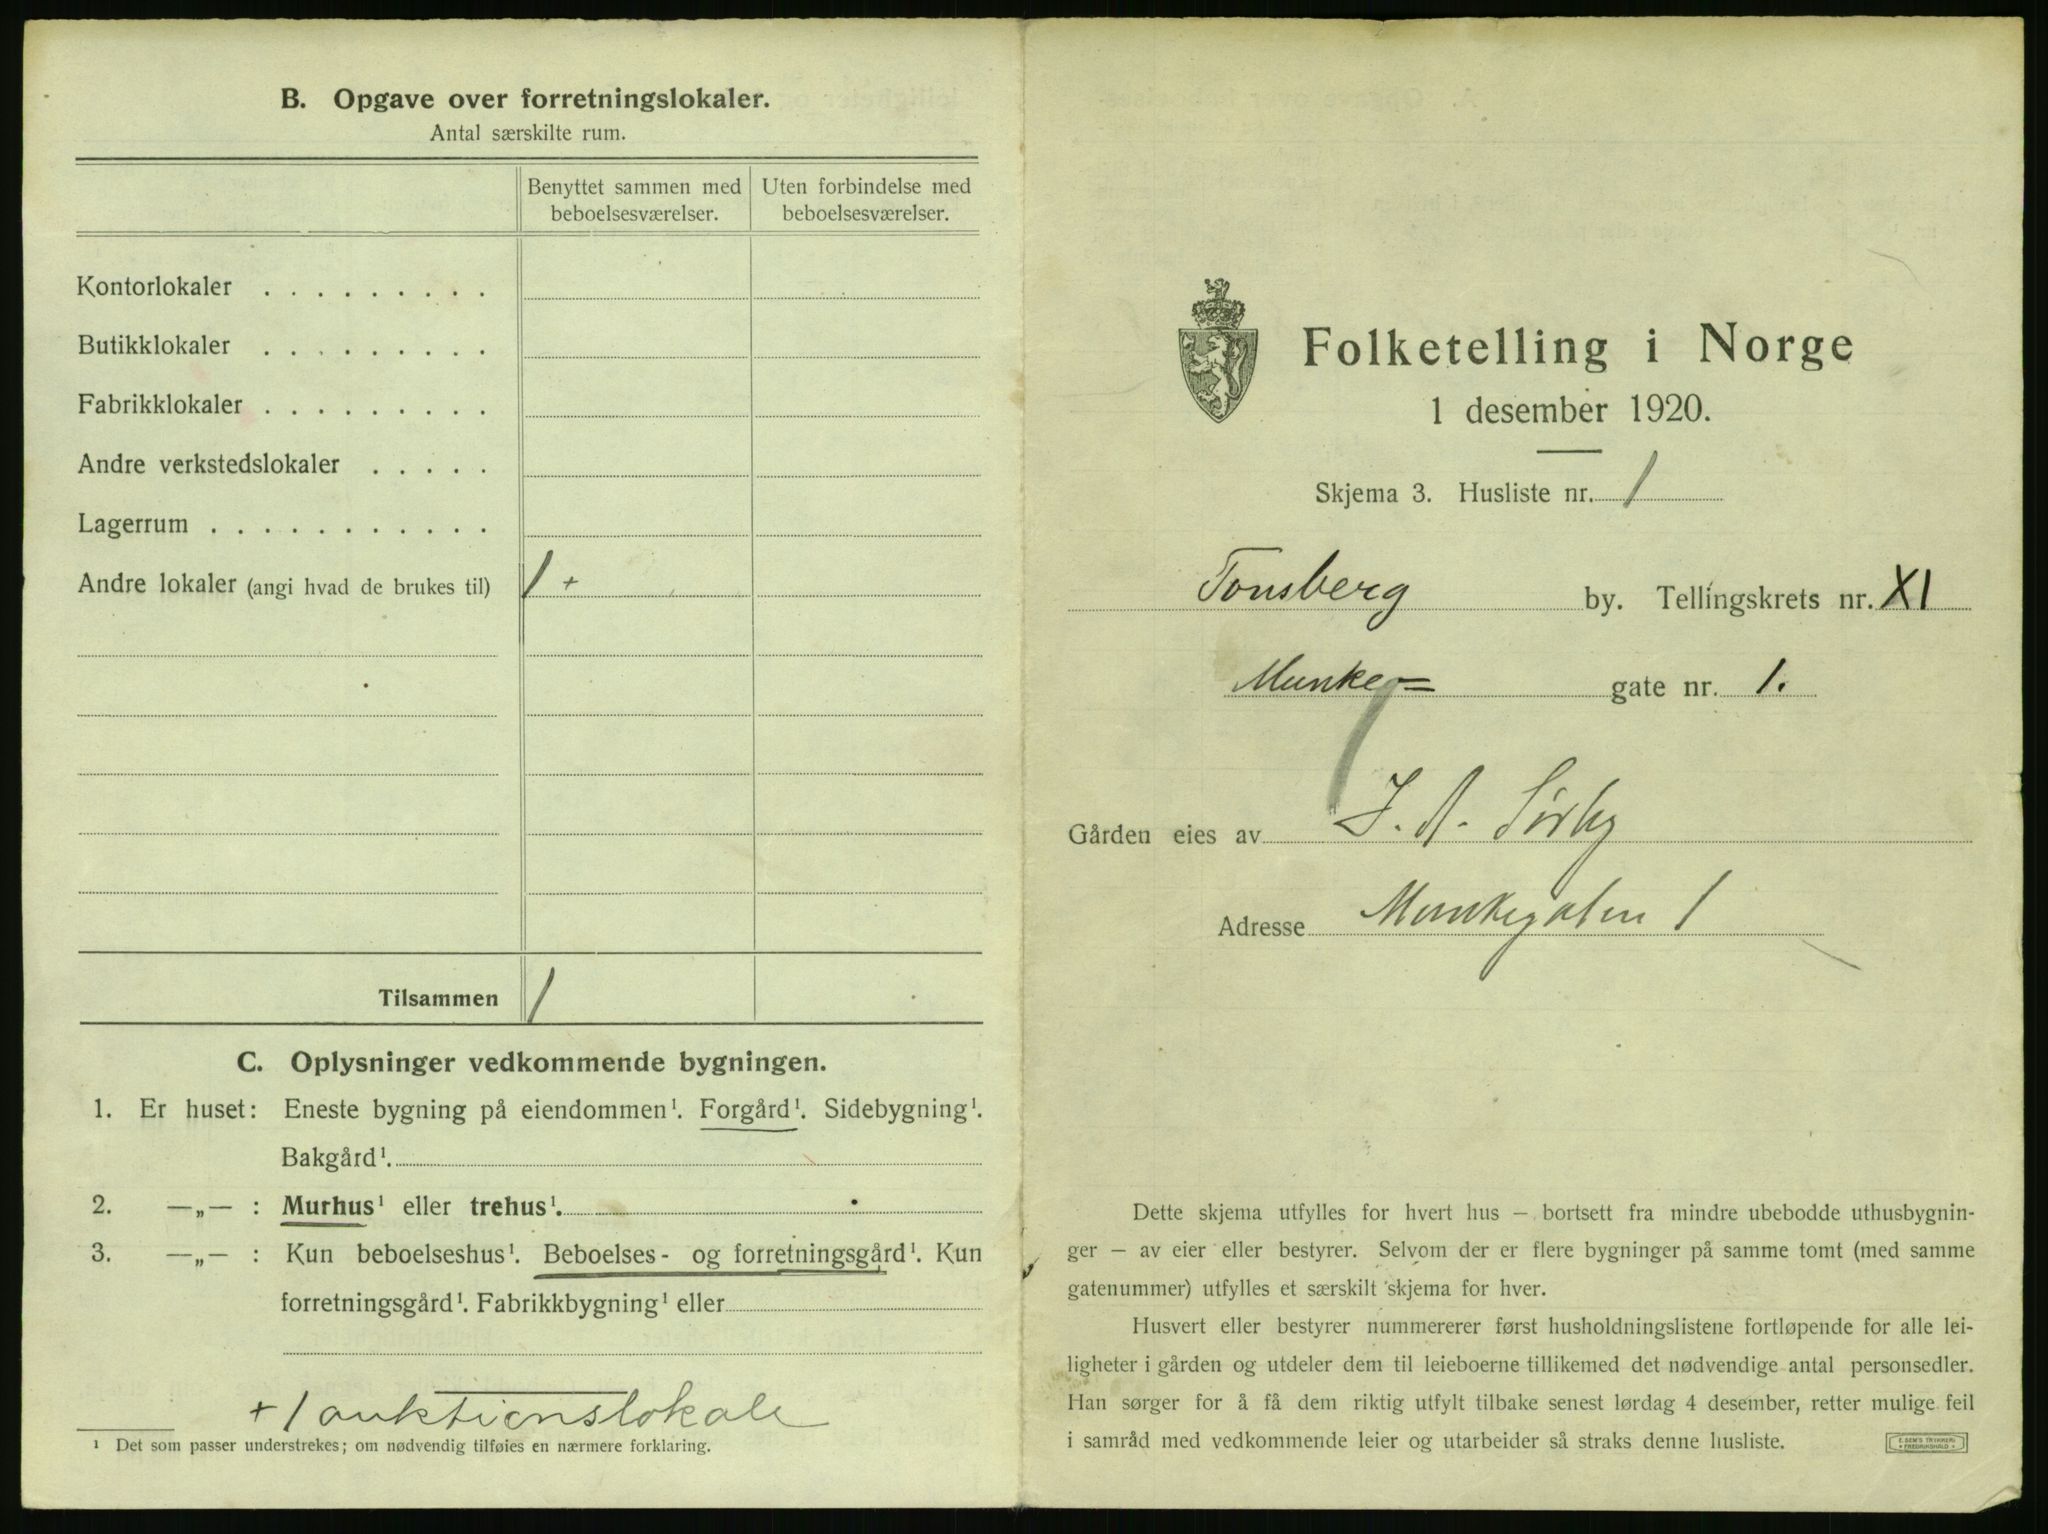 B. Opgave over forretningslokaler.
Antal særskilte rum.
Benyttet sammen med beboelsesværelser.
Uten forbindelse med beboelsesværelser.
Kontorlokaler . . . . . . . . .
Butikklokaler . . . . . . . . .
Fabrikklokaler . . . . . . . . .
Andre verkstedslokaler . . . . .
Lagerrum . . . . . . . . . . .
Andre lokaler (angi hvad de brukes til) 1 +
Tilsammen 1
C. Oplysninger vedkommende bygningen.
1. Er huset: Eneste bygning på eiendommen¹. Forgård¹. Sidebygning¹.
Bakgård¹.
2. —„— : Murhus¹ eller trehus¹.
3. —„— : Kun beboelseshus¹. Beboelses- og forretningsgård¹. Kun
forretningsgård¹. Fabrikkbygning¹ eller
+ 1 auktionslokale
¹ Det som passer understrekes; om nødvendig tilføies en nærmere forklaring.
Folketelling i Norge
1 desember 1920.
Skjema 3. Husliste nr. 1
Tønsberg by. Tellingskrets nr. XI
Munke= gate nr. 1.
Gården eies av J. A. Sørby
Adresse Munkegaten 1
Dette skjema utfylles for hvert hus — bortsett fra mindre ubebodde uthusbygnin-
ger — av eier eller bestyrer. Selvom der er flere bygninger på samme tomt (med samme
gatenummer) utfylles et særskilt skjema for hver.
Husvert eller bestyrer nummererer først husholdningslistene fortløpende for alle lei-
ligheter i gården og utdeler dem til leieboerne tillikemed det nødvendige antal personsedler.
Han sørger for å få dem riktig utfylt tilbake senest lørdag 4 desember, retter mulige feil
i samråd med vedkommende leier og utarbeider så straks denne husliste.
E. SEM'S TRYKKERI
FREDRIKSHALD